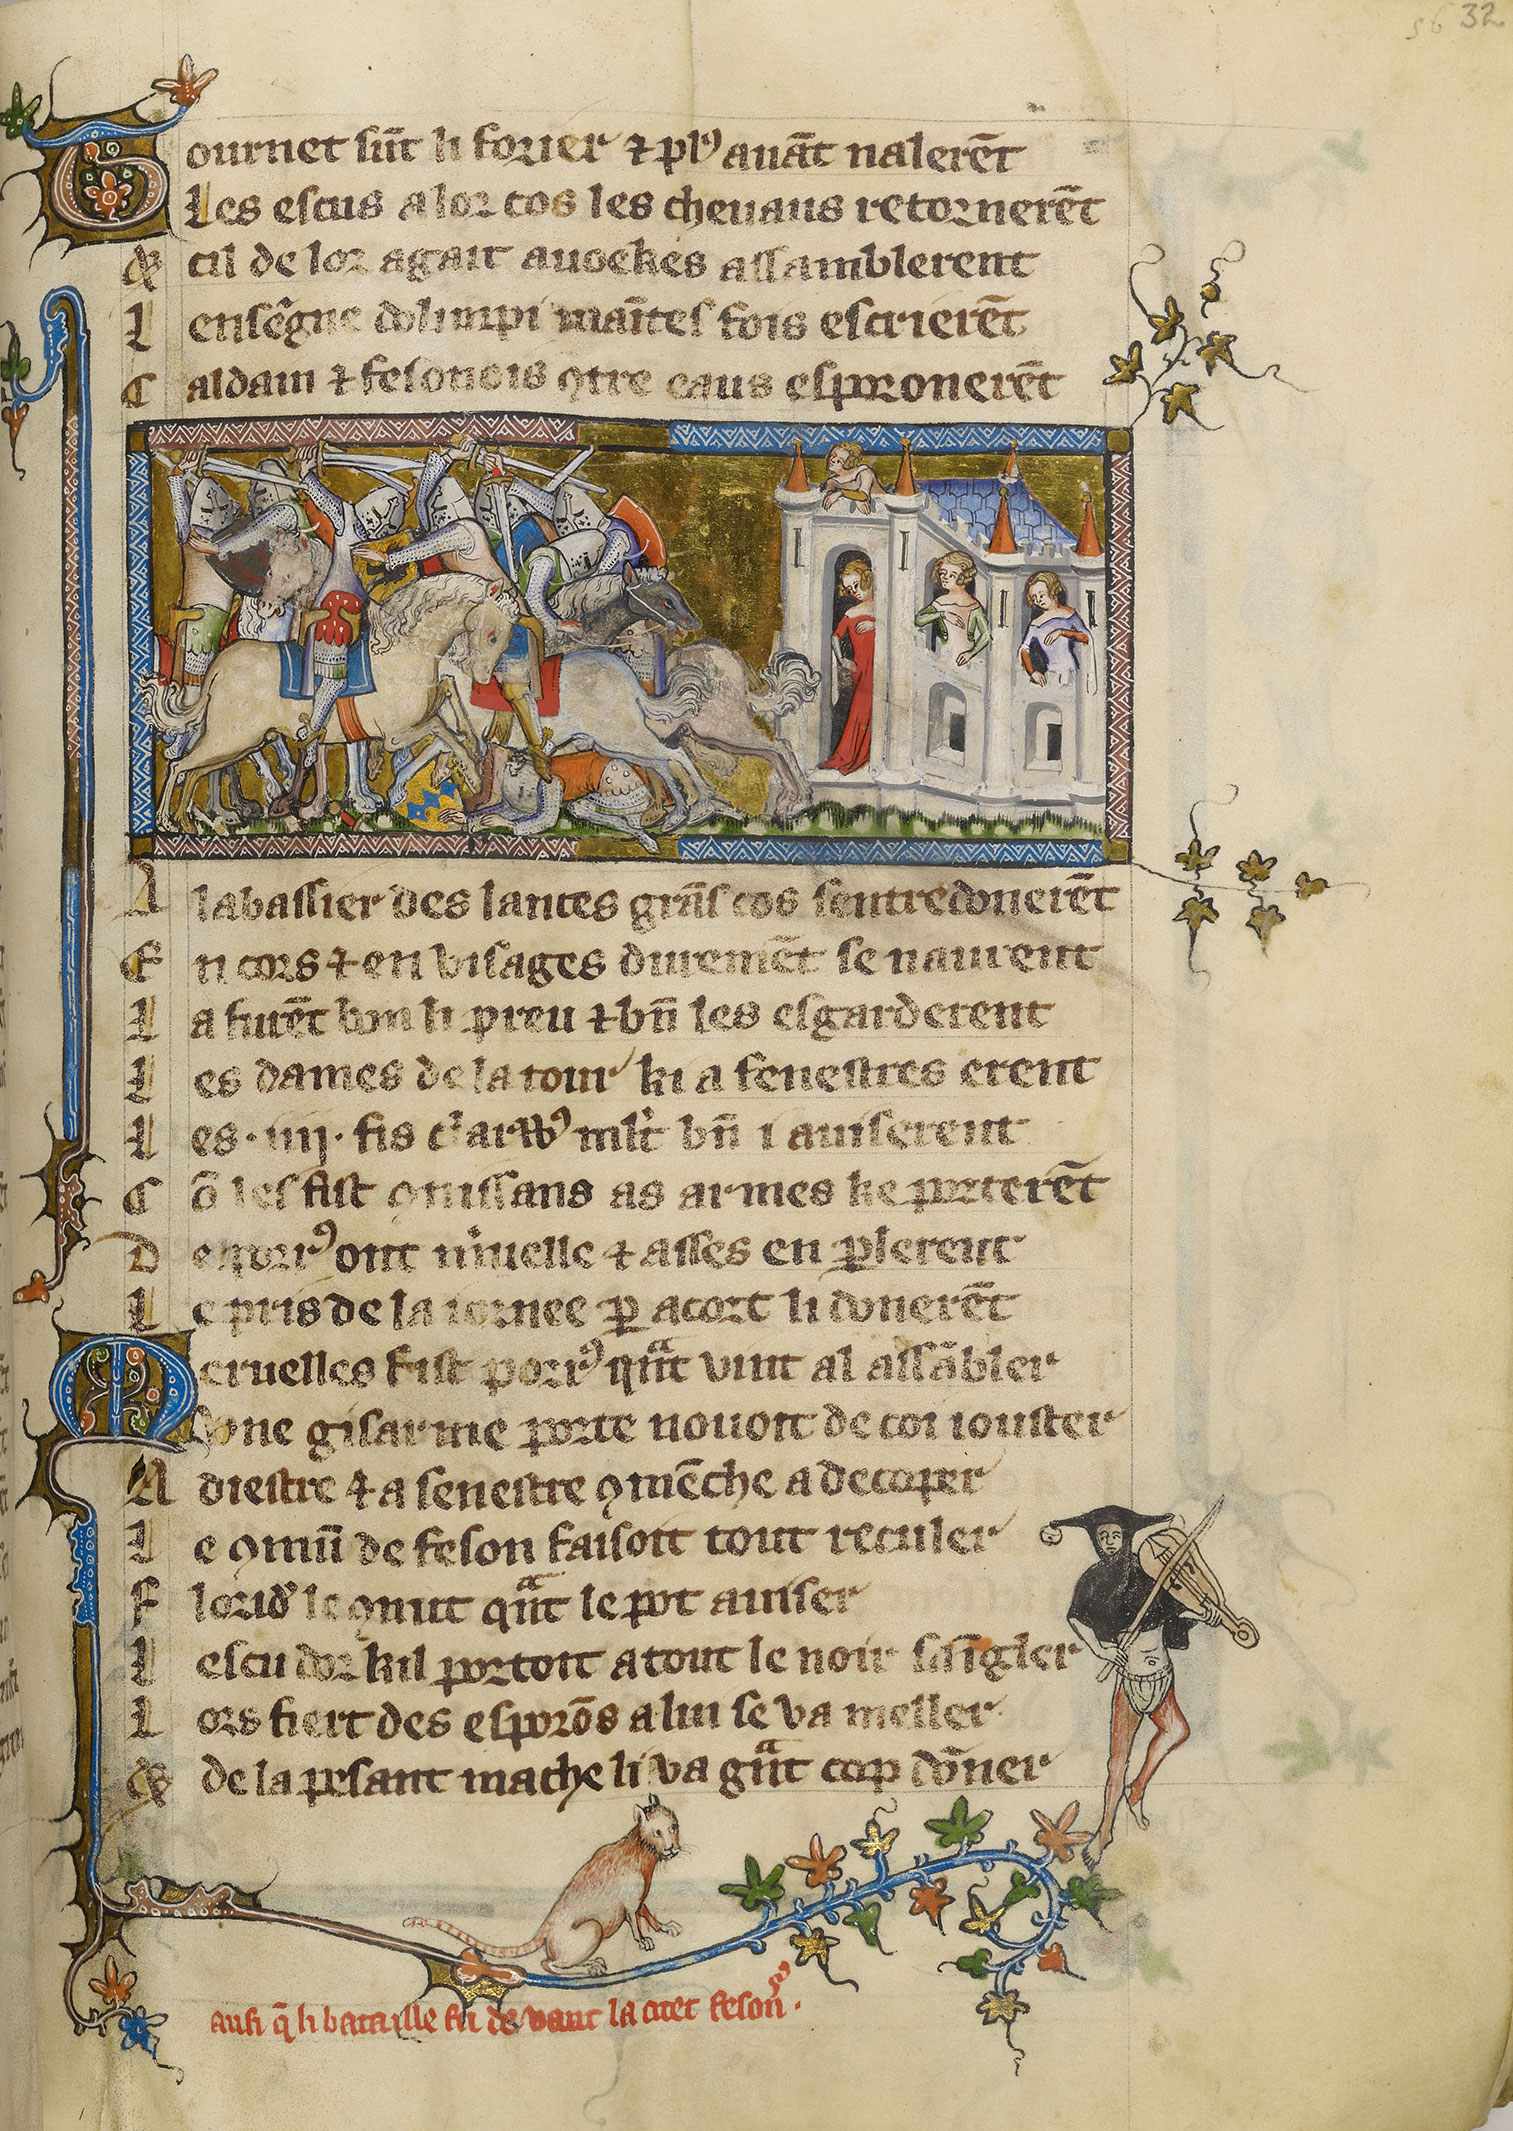 56 32
Tournet sūt li forier ⁊ plꝰ auāt nalerēt
Les escus a lor cos les cheuaus retornerēt
& cil de lor agait auoekes assamblerent
L enseigne dolimpi maītes fois escrierēt
C aldain ⁊ felonois ꝯtre eaus esporonerēt
A labassier des lances grās cos sentredonerēt
E n cors ⁊ en visages duremēt se naurent
L a furēt boin li preu ⁊ bn̄ les esgarderent
L es dames de la tour ki a fenestres erent
L es .iiij. fis mlt bn̄ i auiserent
C ō les fist ꝯnissans as armes ke porterēt
D e porꝰ ont m̄uelle ⁊ asses en ꝑlerent
L e pris de la iornee ꝑ acort li donerēt
Meruelles fist porꝰ qͣnt vint al assābler
dune gisarme porte nouoit de coi iouster
A diestre ⁊ a senestre ꝯmēche a decoper
L e ꝯmū de feson faisoit tout reculer
F lorid' le ꝯnut qͣnt le pot auiser
L escu dor kil portoit a tout le noir sāgler
L ors fiert des esporōs a lui se va meller
& de la pesant mache li va gͣnt cop dōner
ausi q̄ li bataille fu deuant la citet feson.